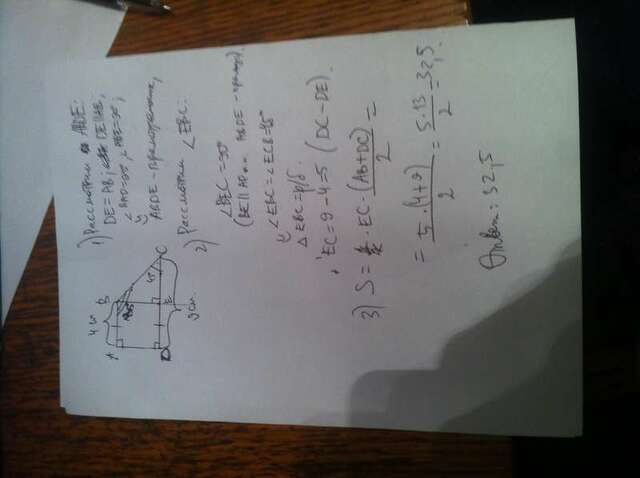 4 см
A
B
45°
D
E
C
9 см.
1) Рассмотрим ABDE:
DE = AB; DE || AB,
∠BAD = 90°, ∠ABE = 90°;
ABDE – прямоугольник,
2) Рассмотрим ∠EBC:
∠BEC = 90°
(BE || AD т.к. ABDE – прямоуг.)
∠EBC = ∠ECB = 45°
△EBC = р/б.
EC = 9 – 4 = 5 (DC – DE).
3) S = · EC · (AB + DC) / 2 =
= 5 · (4 + 9) / 2 = 5 · 13 / 2 = 32,5.
Ответ: 32,5